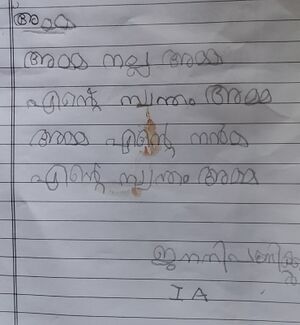 അമ്മ
അമ്മ നല്ല അമ്മ
എന്റെ സ്വന്തം അമ്മ
അമ്മ എന്റെ നന്മ
എന്റെ സ്വന്തം അമ്മ
I A